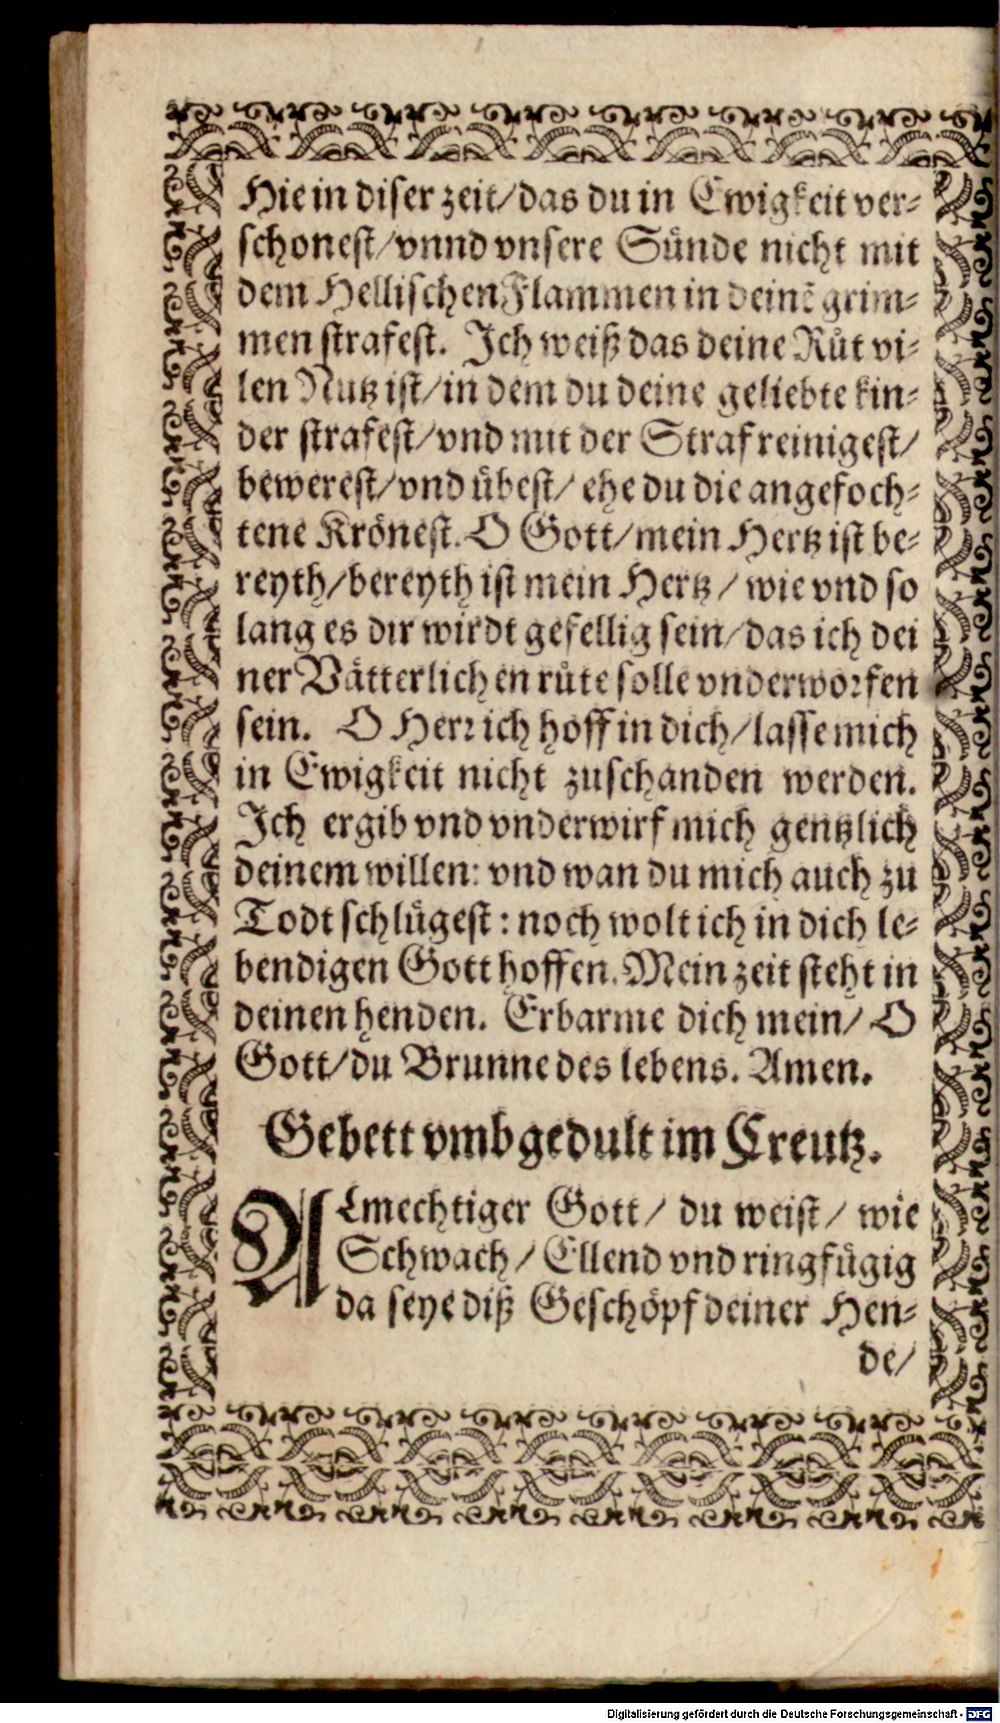 Hie in diser zeit/das du in Ewigkeit ver-
schonest/vnnd vnsere Sünde nicht mit
dem Hellischen Flammen in deinē grim-
men strafest. Ich weiß das deine Růt vi-
len Nutz ist/in dem du deine geliebte kin-
der strafest/vnd mit der Straf reinigest/
bewerest/vnd übest/ ehe du die angefoch-
tene Krönest. O Gott/mein Hertz ist be-
reyth/bereyth ist mein Hertz / wie vnd so
lang es dir wirdt gefellig sein/das ich dei
ner Vätterlichen růte solle vnderworfen
sein. O Herr ich hoff in dich/lasse mich
in Ewigkeit nicht zuschanden werden.
Ich ergib vnd vnderwirf mich gentzlich
deinem willen: vnd wan du mich auch zu
Todt schlügest: noch wolt ich in dich le-
bendigen Gott hoffen. Mein zeit steht in
deinen henden. Erbarme dich mein/ O
Gott/du Brunne des lebens. Amen.
Gebett vmb gedult im Creutz.
ALmechtiger Gott/ du weist/ wie
Schwach/ Ellend vnd ringfügig
da seye diß Geschöpf deiner Hen-
de/
Digitalisierung gefördert durch die Deutsche Forschungsgemeinschaft - DFG